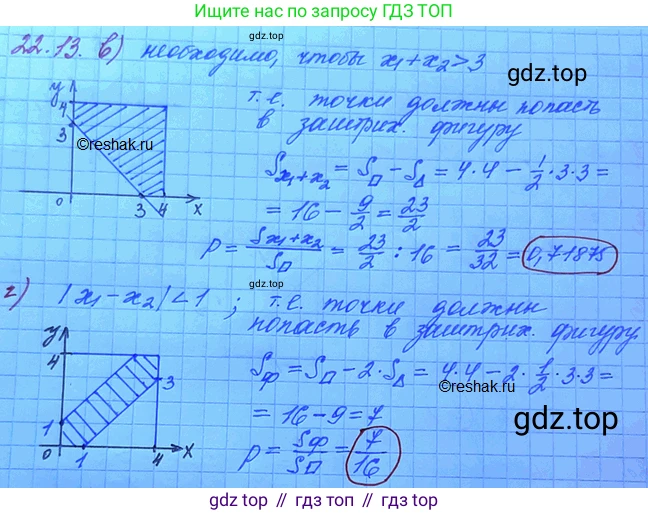 Ищите нас по запросу ГДЗ ТОП
22.13. в) необходимо, чтобы x₁+x₂>3
gdz.top
т.е. точки должны попасть
в заштрих. фигуру
y
4
3
0
3 4 x
©reshak.ru
S x₁+x₂ = S□ - S△ = 4·4 - 1/2·3·3 =
= 16 - 9/2 = 23/2
P = S x₁+x₂ / S□ = 23/2 : 16 = 23/32 = 0,71875
gdz.top
г) |x₁-x₂|<1 ; т.е. точки должны
попасть в заштрих. фигуру.
y
4
3
1
0 1 4 x
Sф = S□ - 2·S△ = 4·4 - 2·1/2·3·3 =
©reshak.ru
= 16 - 9 = 7
gdz.top
p = Sф/S□ = 7/16
gdz.top // гдз топ // gdz.top // гдз топ // gdz.top